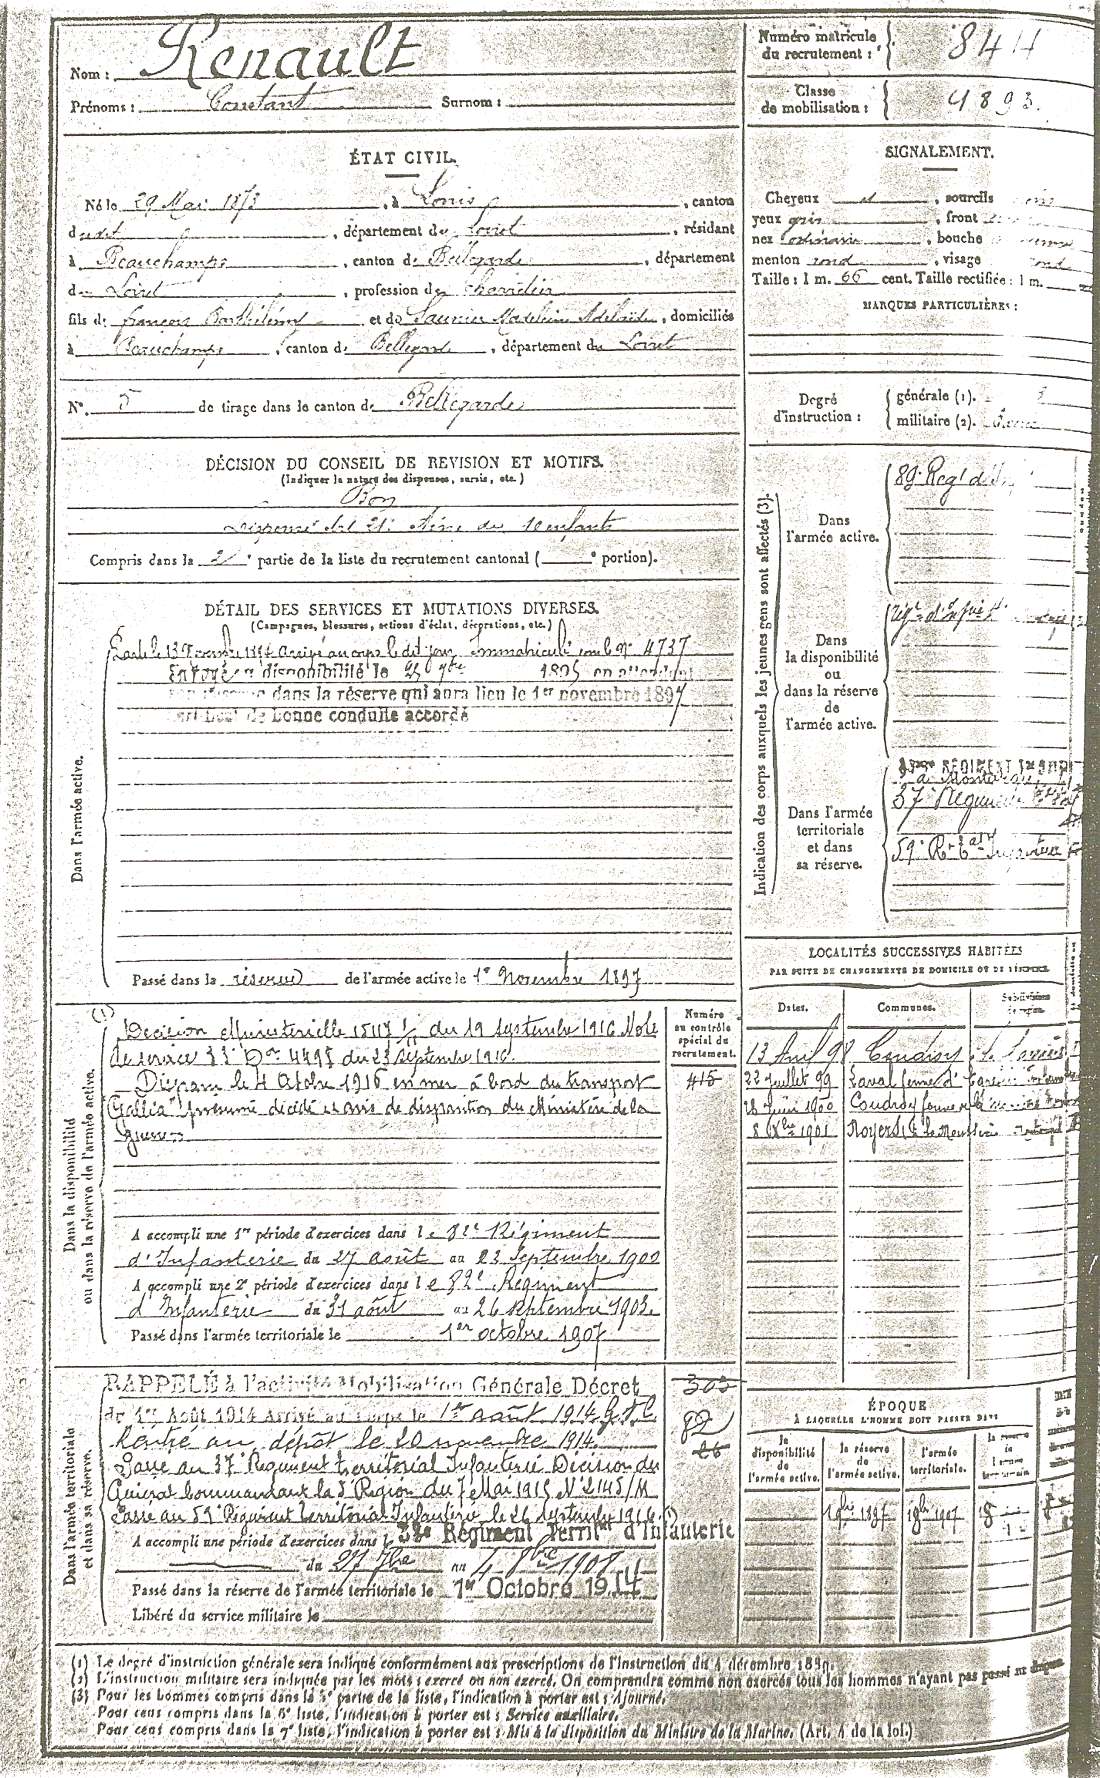 Nom : Renault
Prénoms : Constant Surnom :
Numéro matricule
du recrutement : 844
Classe
de mobilisation : 1893.
ÉTAT CIVIL.
Né le 29 Mai 1873, à Lorris, canton
dudit, département du Loiret, résidant
à Beauchamps, canton de Bellegarde, département
du Loiret, profession de
fils de françois Barthélémy et de Saunier Madeleine Adélaïde, domiciliés
à Beauchamps, canton de Bellegarde, département du Loiret
N°. 5 de tirage dans le canton de Bellegarde
SIGNALEMENT.
Cheveux , sourcils
yeux gris, front
nez ordinaire, bouche
menton rond, visage rond
Taille : 1 m. 66 cent. Taille rectifiée : 1 m.
MARQUES PARTICULIÈRES :
Degré
d'instruction :
générale (1).
militaire (2).
DÉCISION DU CONSEIL DE REVISION ET MOTIFS.
(Indiquer la nature des dispenses, sursis, etc.)
Bon
Dispensé Art 21 Aîné de enfants
Compris dans la 2 e partie de la liste du recrutement cantonal ( e portion).
DÉTAIL DES SERVICES ET MUTATIONS DIVERSES.
(Campagnes, blessures, actions d'éclat, décorations, etc.)
Dans l'armée active.
le 13 Novembre 1894 arrivé au corps le dit jour Immatriculé sous le N° 4737
Envoyé en disponibilité le 25 7bre 1895 en attendant
son passage dans la réserve qui aura lieu le 1er novembre 1897
Certificat de bonne conduite accordé
Passé dans la réserve de l'armée active le 1er Novembre 1897
Indication des corps auxquels les jeunes gens sont affectés (3).
Dans
l'armée active.
89e Regt d'Inf
Dans
la disponibilité
ou
dans la réserve
de
l'armée active.
Dans l'armée
territoriale
et dans
sa réserve.
à Montargis
37e Régiment
59e Rt tal Infanterie
LOCALITÉS SUCCESSIVES HABITÉES
PAR SUITE DE CHANGEMENTS DE DOMICILE OU DE RÉSIDENCE.
Dates. Communes. Subdivisions de région.
13 Avril 98 Coudroy
22 Juillet 99 Laval
28 Juin 1900 Coudroy
8 Xbre 1901 Noyers
Dans la disponibilité
ou dans la réserve de l'armée active.
(1) Décision Ministerielle du 19 septembre 1916 Note
de service du 23 septembre 1916.
Disparu le 4 Octobre 1916 en mer à bord du transport
"Gallia" Présumé décédé et avis de disparition du Ministère de la
Guerre
Numéro
au contrôle
spécial du
recrutement.
415
A accompli une 1re période d'exercices dans le 82e Régiment
d'Infanterie du 27 août au 23 Septembre 1900
A accompli une 2e période d'exercices dans le 82e Régiment
d'Infanterie du 31 août au 26 septembre 1903.
Passé dans l'armée territoriale le 1er octobre 1907
Dans l'armée territoriale
et dans sa réserve.
RAPPELÉ à l'activité Mobilisation Générale Décret
du 1er Août 1914 Arrivé au corps le 1er août 1914
Rentré au dépôt le 20 novembre 1914.
Passé au 37e Régiment territorial Infanterie Décision du
Général Commandant la 5 Région du 7 Mai 1915 N° 2145/M
Passé au 59e Régiment Territorial Infanterie le 26 septembre 1916 (1)
A accompli une période d'exercices dans le 38e Régiment Territal d'Infanterie
du 27 7bre au 4 8bre 1908
Passé dans la réserve de l'armée territoriale le 1er Octobre 1914
Libéré du service militaire le
303
82
26
ÉPOQUE
À LAQUELLE L'HOMME DOIT PASSER DANS
la
disponibilité
de
l'armée active.
la réserve
de
l'armée active.
l'armée
territoriale.
1er 9bre 1897 1er 8bre 1907
(1) Le degré d'instruction générale sera indiqué conformément aux prescriptions de l'Instruction du 4 décembre 1889.
(2) L'instruction militaire sera indiquée par les mots : exercé ou non exercé. On comprendra comme non exercés tous les hommes n'ayant pas passé
(3) Pour les hommes compris dans la 5e partie de la liste, l'indication à porter est : Ajourné.
Pour ceux compris dans la 6e liste, l'indication à porter est : Service auxiliaire.
Pour ceux compris dans la 7e liste, l'indication à porter est : Mis à la disposition du Ministre de la Marine. (Art. 4 de la loi.)